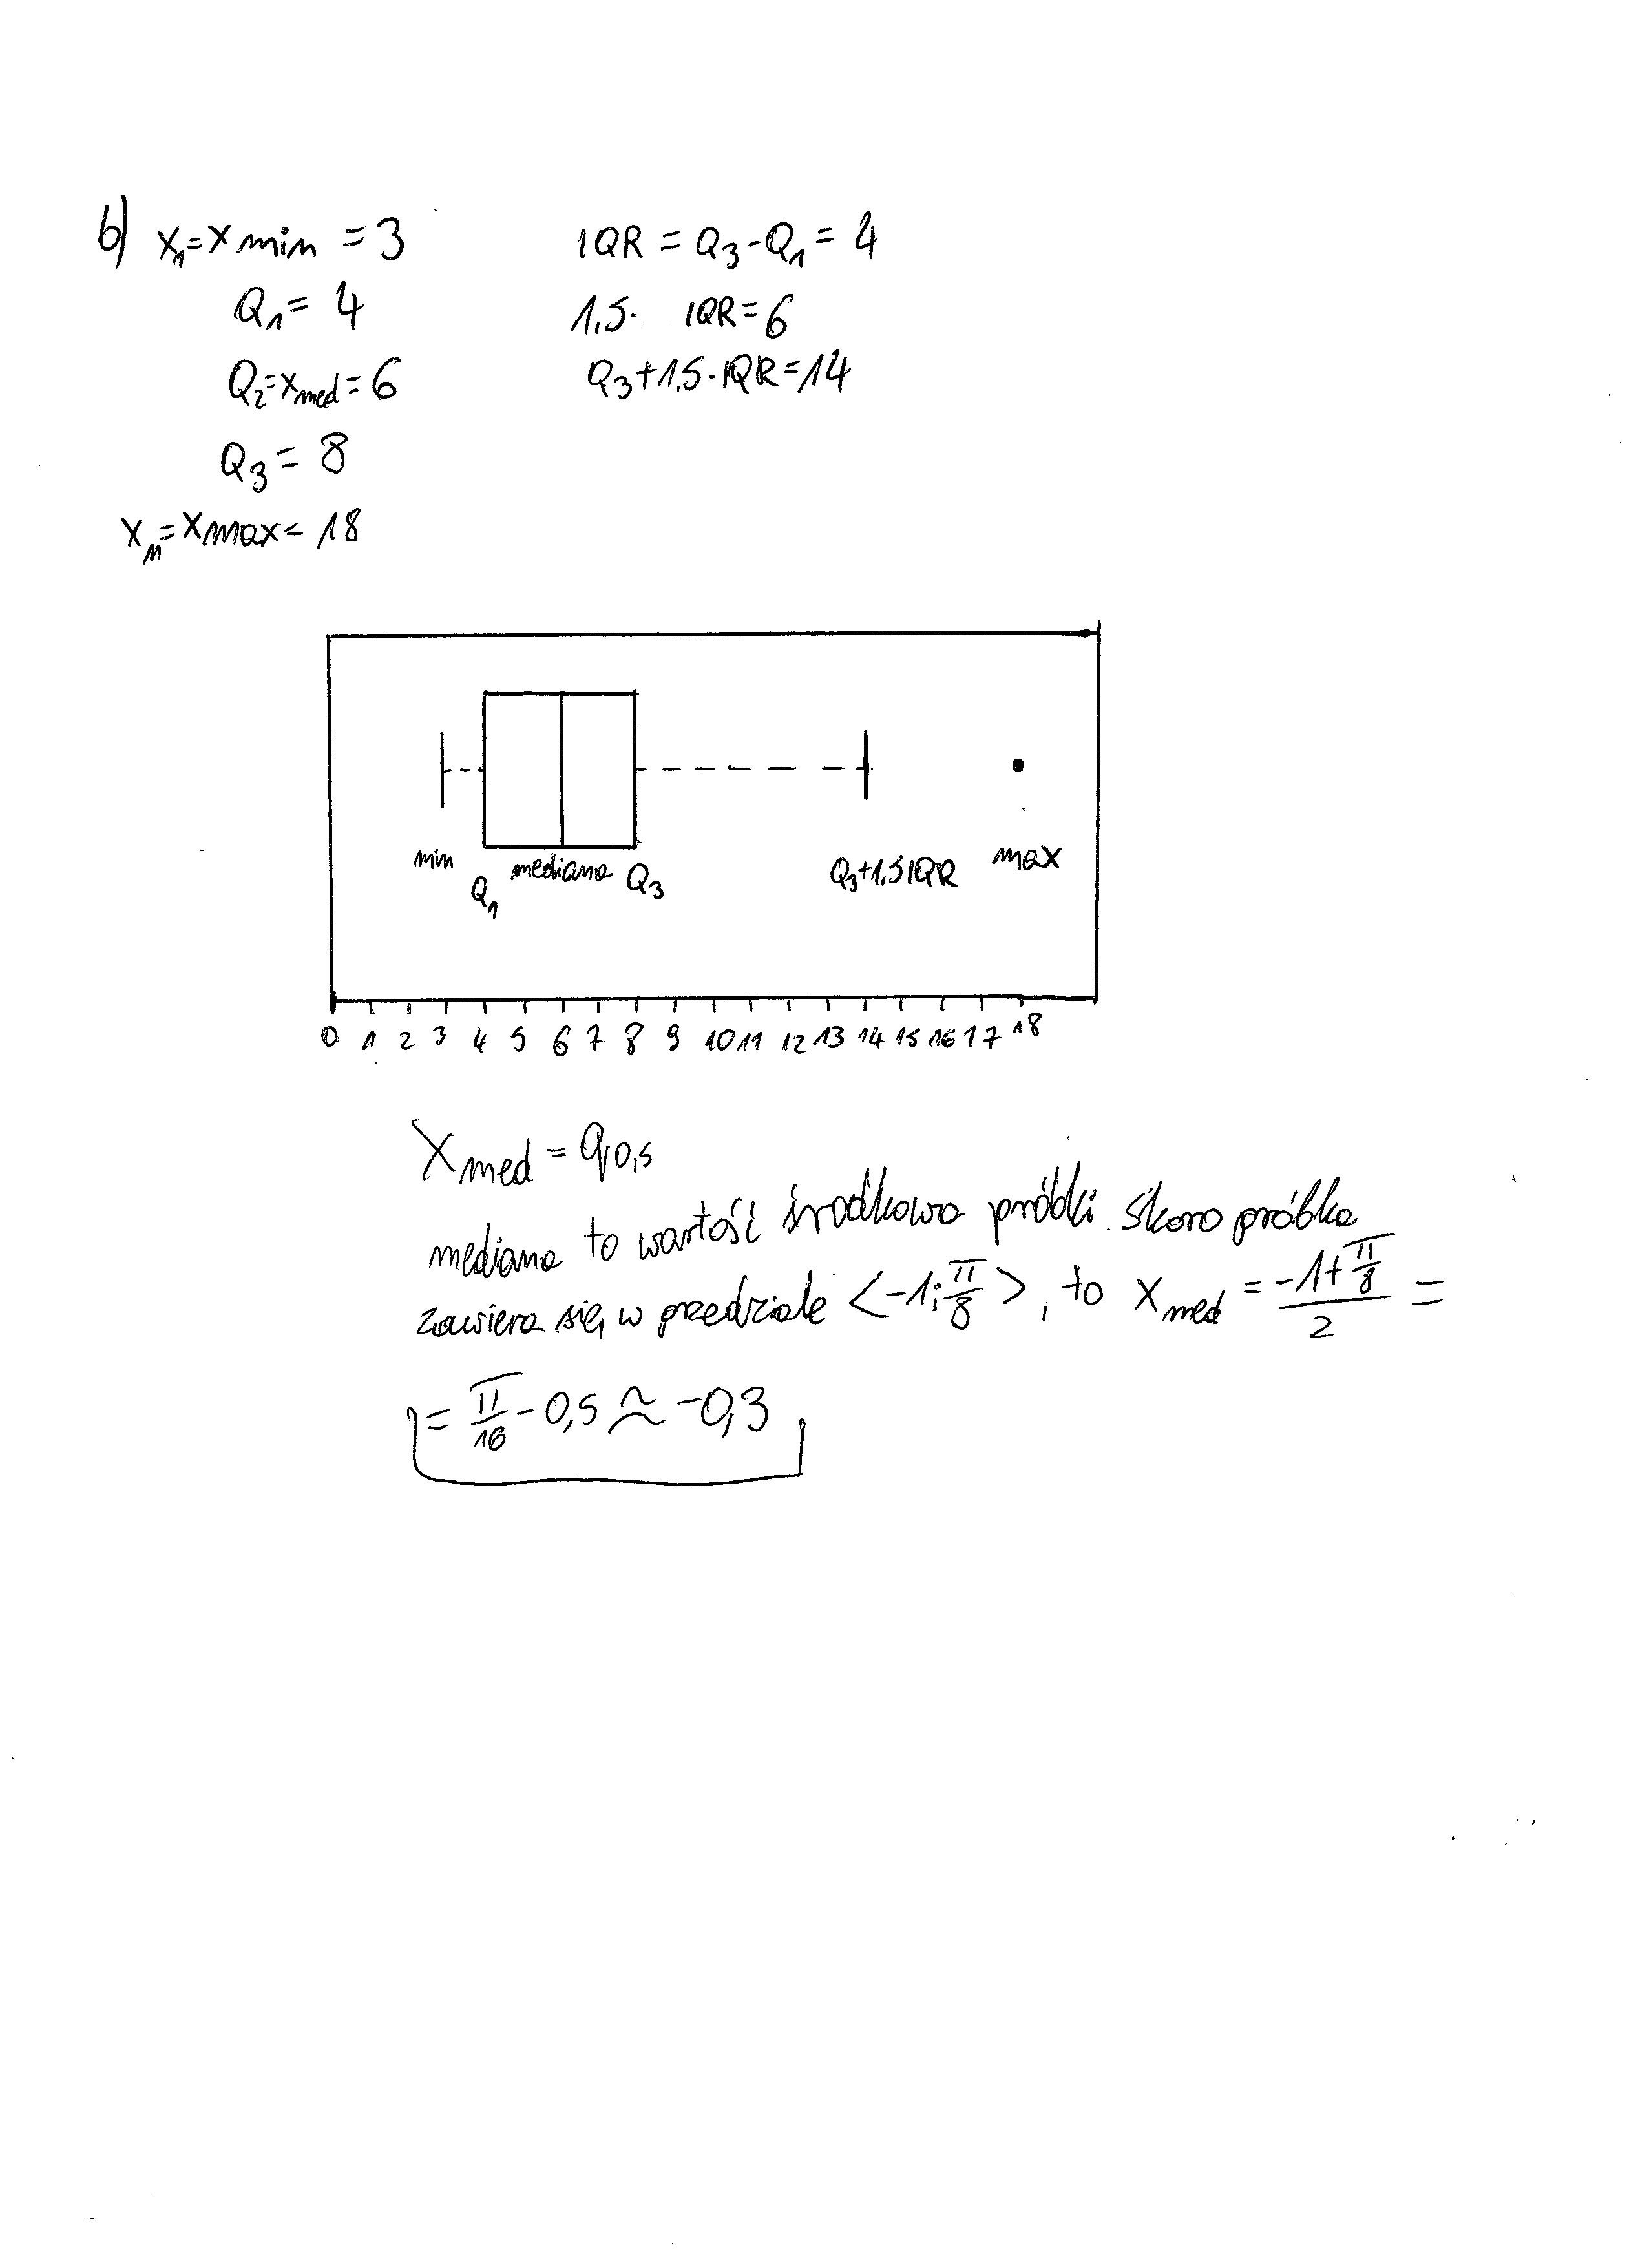 b) x₁=x min = 3
Q₁ = 4
Q₂=x med = 6
Q₃ = 8
xₙ=x max = 18
IQR = Q₃-Q₁ = 4
1,5· IQR=6
Q₃+1,5·IQR=14
min Q₁ mediana Q₃ Q₃+1,5IQR max
0 1 2 3 4 5 6 7 8 9 10 11 12 13 14 15 16 17 18
X med = q₀,₅
mediana to wartość środkowa próbki. Skoro próbka
zawiera się w przedziale <-1; π/8>, to x med = (-1+π/8)/2 =
= π/16 - 0,5 ≈ -0,3